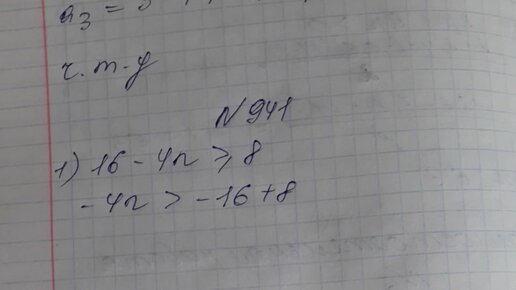 a₃ = 3
ч.т.д
N 941
1) 16 - 4n ⩾ 8
- 4n > -16 + 8